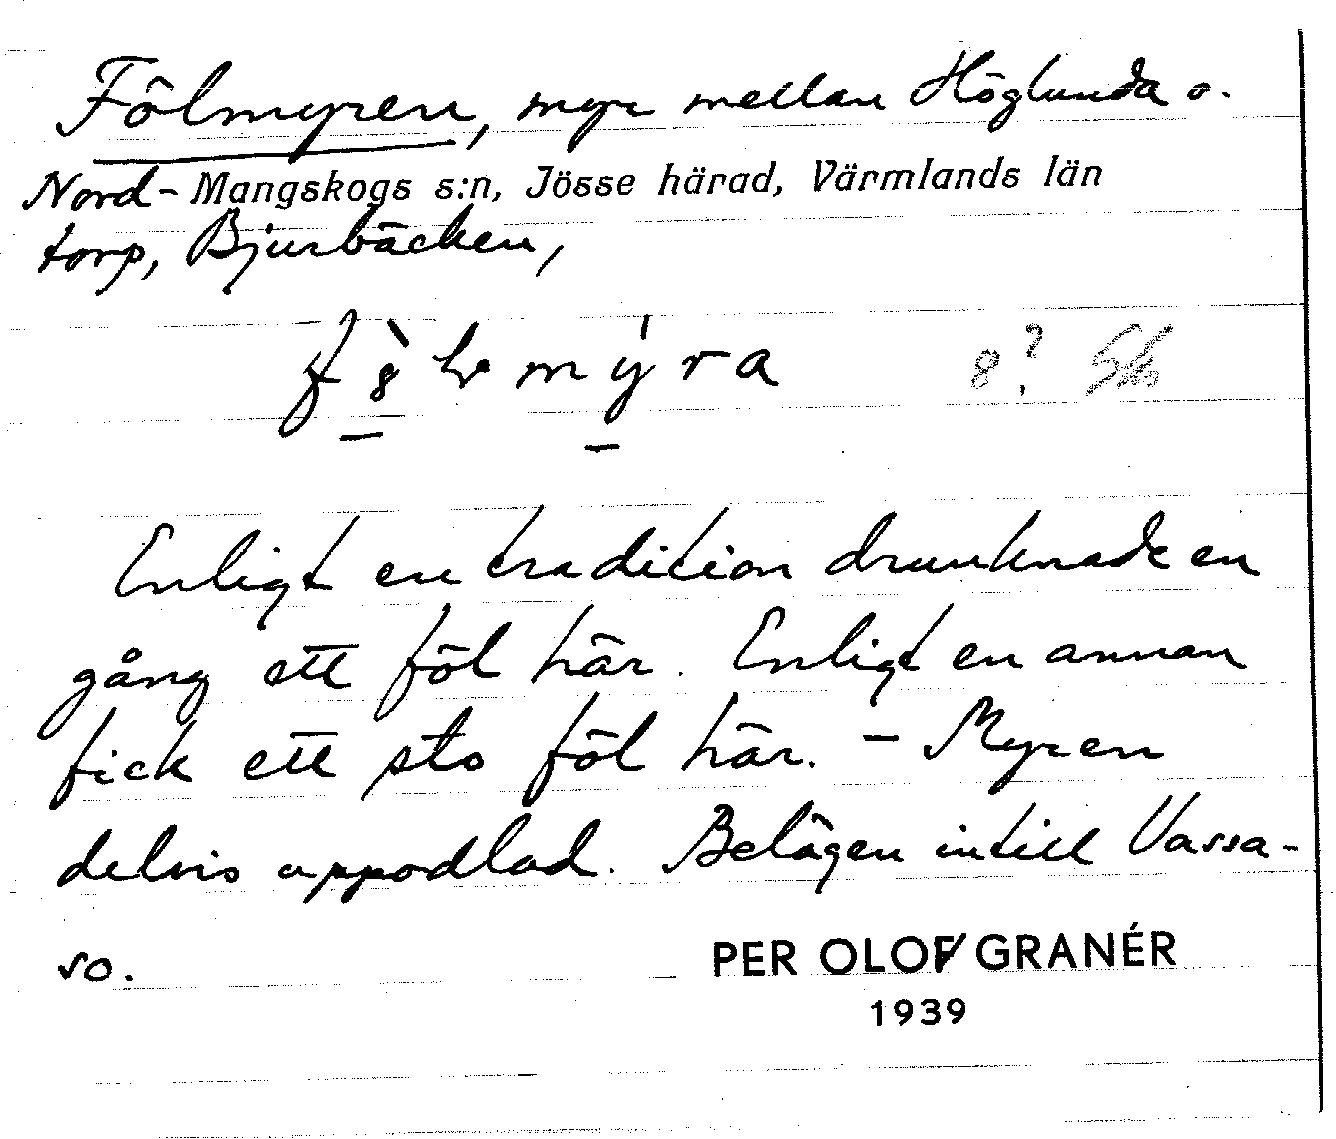 Fölmyren, myr mellan Höglunda o.
Nord- Mangskogs s:n, Jösse härad, Värmlands län
torp, Bjurbäcken,
8?
Enligt en tradition drunknade en
gång ett föl här. Enligt en annan
fick ett sto föl här. – Myren
delvis uppodlad. Belägen intill Vassa-
ro.
PER OLOF GRANÉR
1939